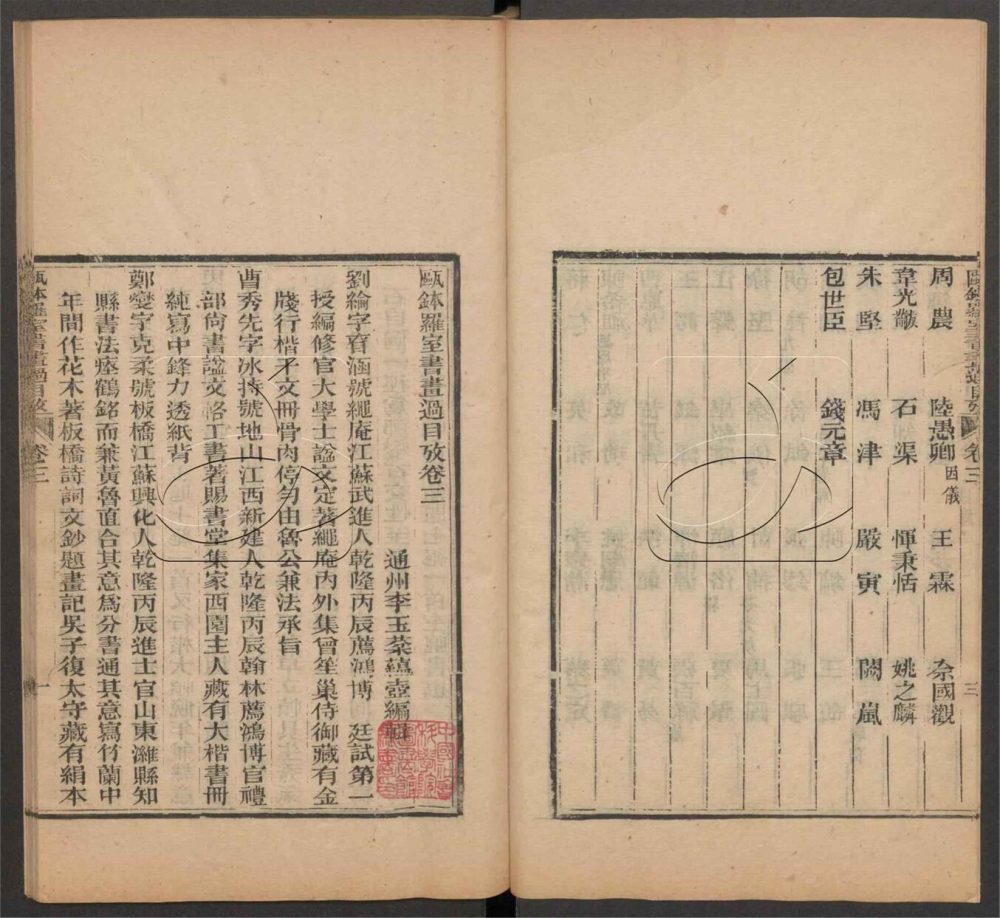 周農 陸愚卿 因儀 王霖 余國觀
韋光黻 石渠 惲秉恬 姚之麟
朱堅 馮津 嚴寅 閔嵐
包世臣 錢元章
卷三
三
甌鉢羅室書畫過目攷卷三
通州李玉棻 壺編輯
劉綸字眘涵號繩庵江蘇武進人乾隆丙辰薦鴻博 廷試第一
授編修官大學士諡文定著繩庵內外集曾笙巢侍御藏有金
牋行楷子文冊骨肉停勻由魯公兼法承旨
曹秀先字冰持號地山江西新建人乾隆丙辰翰林薦鴻博官禮
部尙書諡文恪工書著賜書堂集家西園主人藏有大楷書冊
純寫中鋒力透紙背
鄭燮字克柔號板橋江蘇興化人乾隆丙辰進士官山東濰縣知
縣書法瘞鶴銘而兼黃魯直合其意爲分書通其意寫竹蘭中
年間作花木著板橋詩詞文鈔題畫記吳子復太守藏有絹本
甌鉢羅室書畫過目攷
卷三
一